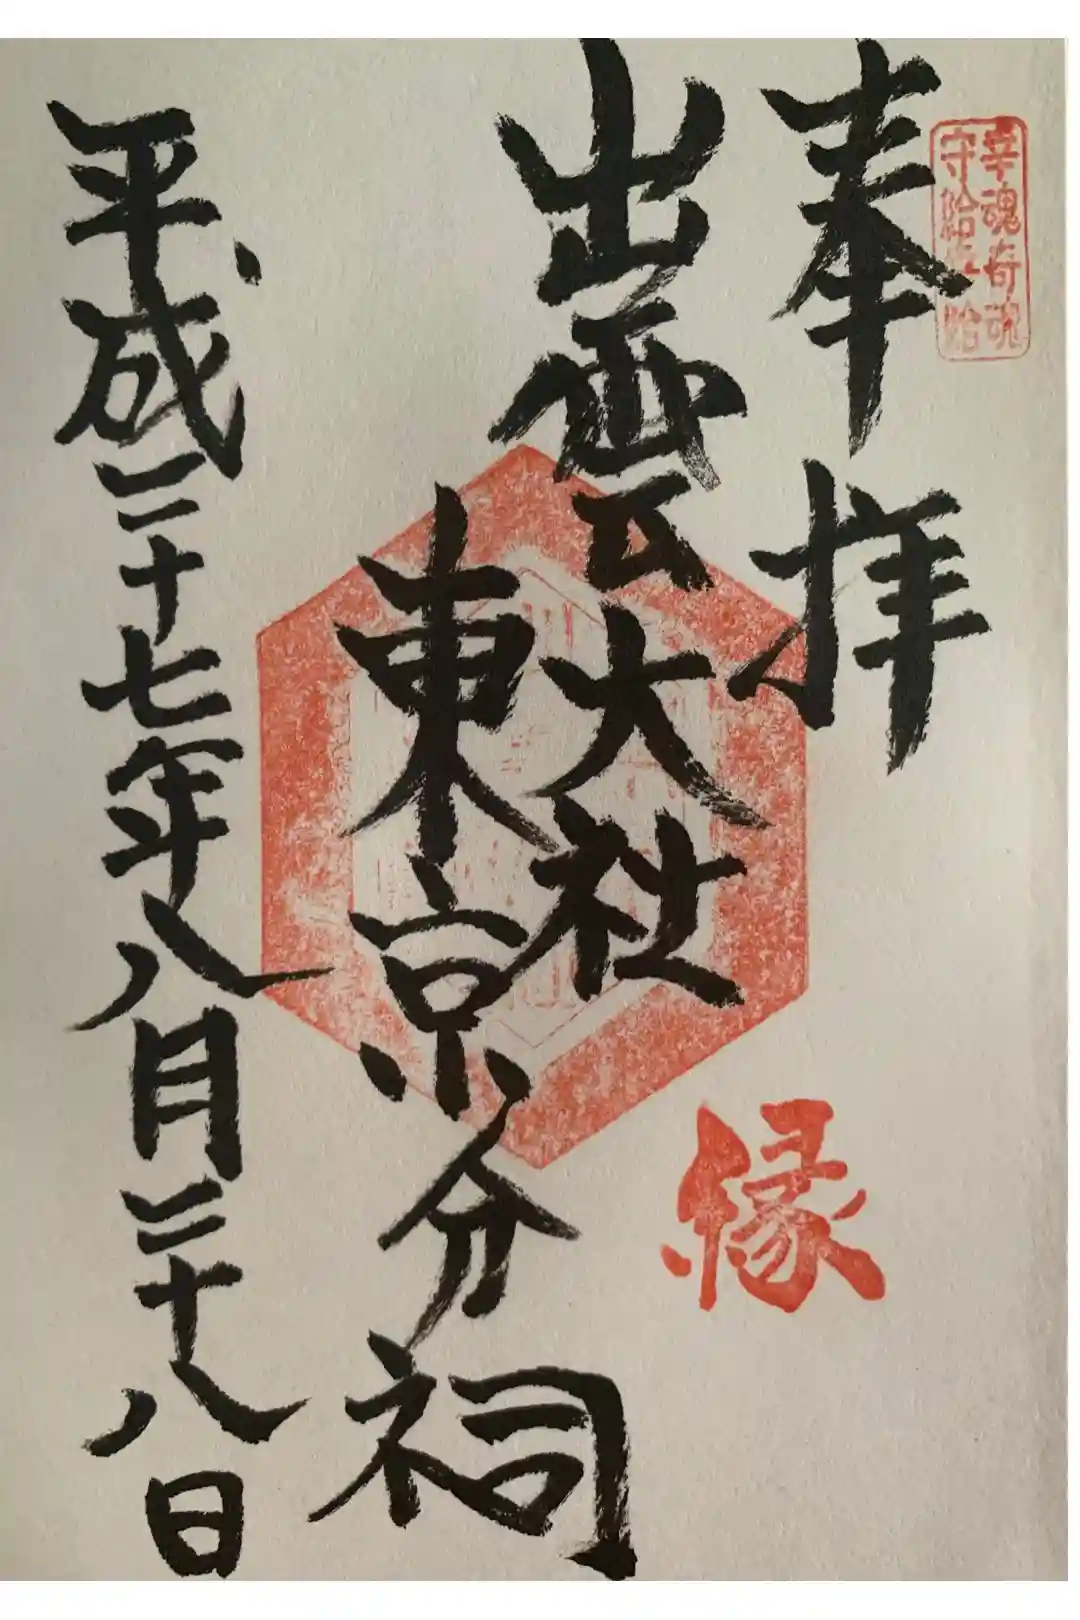 幸魂奇魂
守給幸給
奉拝
出雲大社
東京分祠
縁
平成二十七年八月二十八日